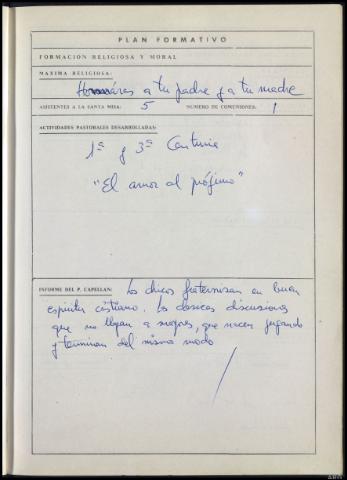 PLAN FORMATIVO
FORMACION RELIGIOSA Y MORAL
MAXIMA RELIGIOSA:
Honraras a tu padre y a tu madre
ASISTENTES A LA SANTA MISA: 5 NUMERO DE COMUNIONES: 1
ACTIVIDADES PASTORALES DESARROLLADAS:
1ª y 3ª Centuria
"El amor al prójimo"
INFORME DEL P. CAPELLAN: Los chicos fraternizan en buen
espiritu cristiano. Los clasicas discusiones
que no llegan a mayores, que nacen jugando
y terminan del mismo modo